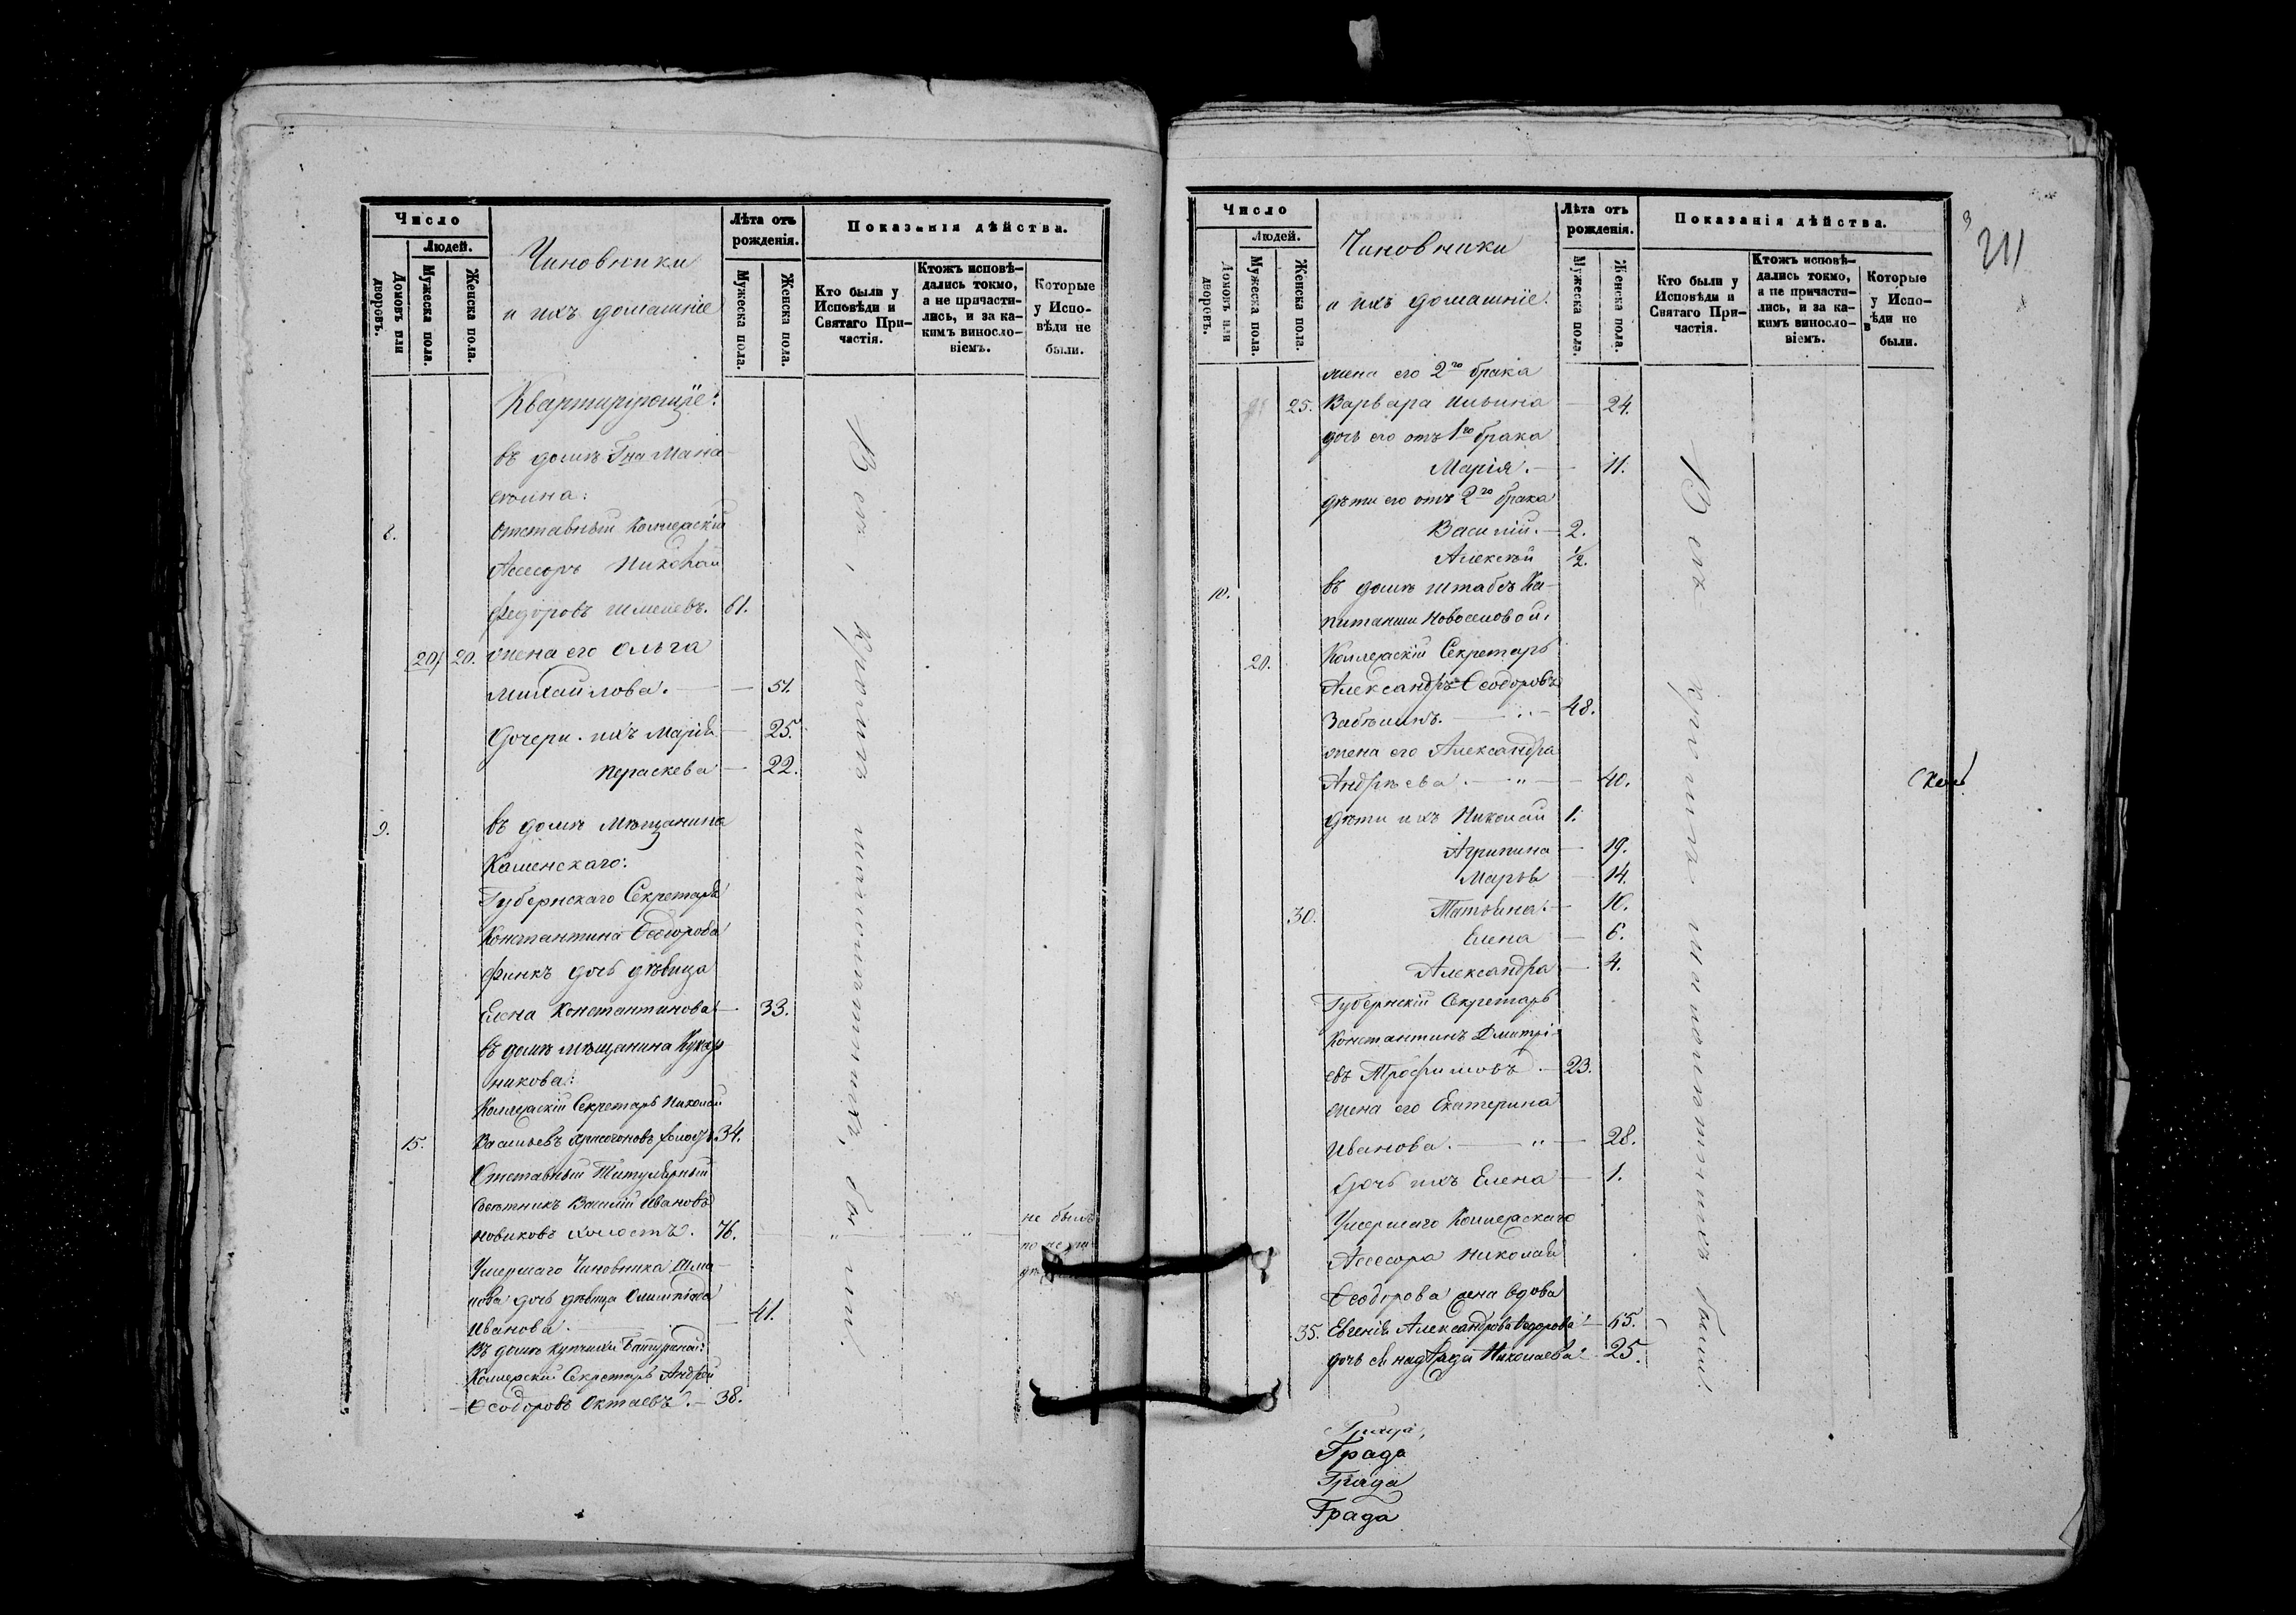 Число
Людей.
Домовъ или дворовъ.
Мужеска пола.
Женска пола.
Чиновники
и ихъ домашніе
Лѣта отъ рожденія.
Мужеска пола.
Женска пола.
Показанія дѣйства.
Кто были у Исповѣди и Святаго При-частія.
Ктожъ исповѣ-дались токмо, а не причасти-лись, и за ка-кимъ винословіемъ.
Которые у Испо-вѣди не были.
Квартирующіе:
въ домѣ Гна
8. Отставный Коллежскій
Ассесоръ Николай
Федоровъ Шмелевъ. 61.
20. 20. жена его Ольга
Михайлова. — 51.
Дочери ихъ Марія — 25.
Параскева — 22.
9. въ домѣ Мѣщанина
Каменскаго:
Губернскаго Секретаря
Константина Ѳеодорова
Финкъ дочь дѣвица
Елена Константинова — 33.
въ домѣ мѣщанина
никова:
Коллежскій Секретарь Николай
15. Васильевъ 34.
Отставный Титулярный
Совѣтникъ Василій Ивановъ
Новиковъ холостъ. 76. не былъ
Умершаго Чиновника
дочь дѣвица Олимпіада
Иванова. — 41.
Въ домѣ купчихи
Коллежскій Секретарь Андрей
Ѳеодоровъ Октаевъ. — 38.
Всѣ, кромѣ
Число
Людей.
Домовъ или дворовъ.
Мужеска пола.
Женска пола.
Чиновники
и ихъ домашніе.
Лѣта отъ рожденія.
Мужеска пола.
Женска пола.
Показанія дѣйства.
Кто были у Исповѣди и Святаго При-частія.
Ктожъ исповѣ-дались токмо, а не причасти-лись, и за ка-кимъ винословіемъ.
Которые у Испо-вѣди не были.
3
жена его 2го брака
25. Варвара Ильина — 24.
дочь его отъ 1го брака
Марія. — 11.
дѣти его отъ 2го брака
Василій. — 2.
Алексѣй 1/2.
10. въ домѣ штабсъ Ка-
питанши Новоселовой.
20. Коллежскій Секретарь
Александръ Ѳеодоровъ
48.
жена его Александра
Андрѣева. — 40.
дѣти ихъ Николай 1.
Агрипина — 19.
Марья — 14.
30. Татьяна — 10.
Елена — 6.
Александра — 4.
Губернскій Секретарь
Константинъ Дмитрі-
евъ Трофимовъ. — 23.
жена его Екатерина
Иванова. — 28.
Дочь ихъ Елена — 1.
Умершаго Коллежскаго
Ассесора Николая
Ѳеодорова жена вдова
35. Евгенія Александрова 65.
дочь Николаева 25.
Всѣ кромѣ
Града
Града
Града